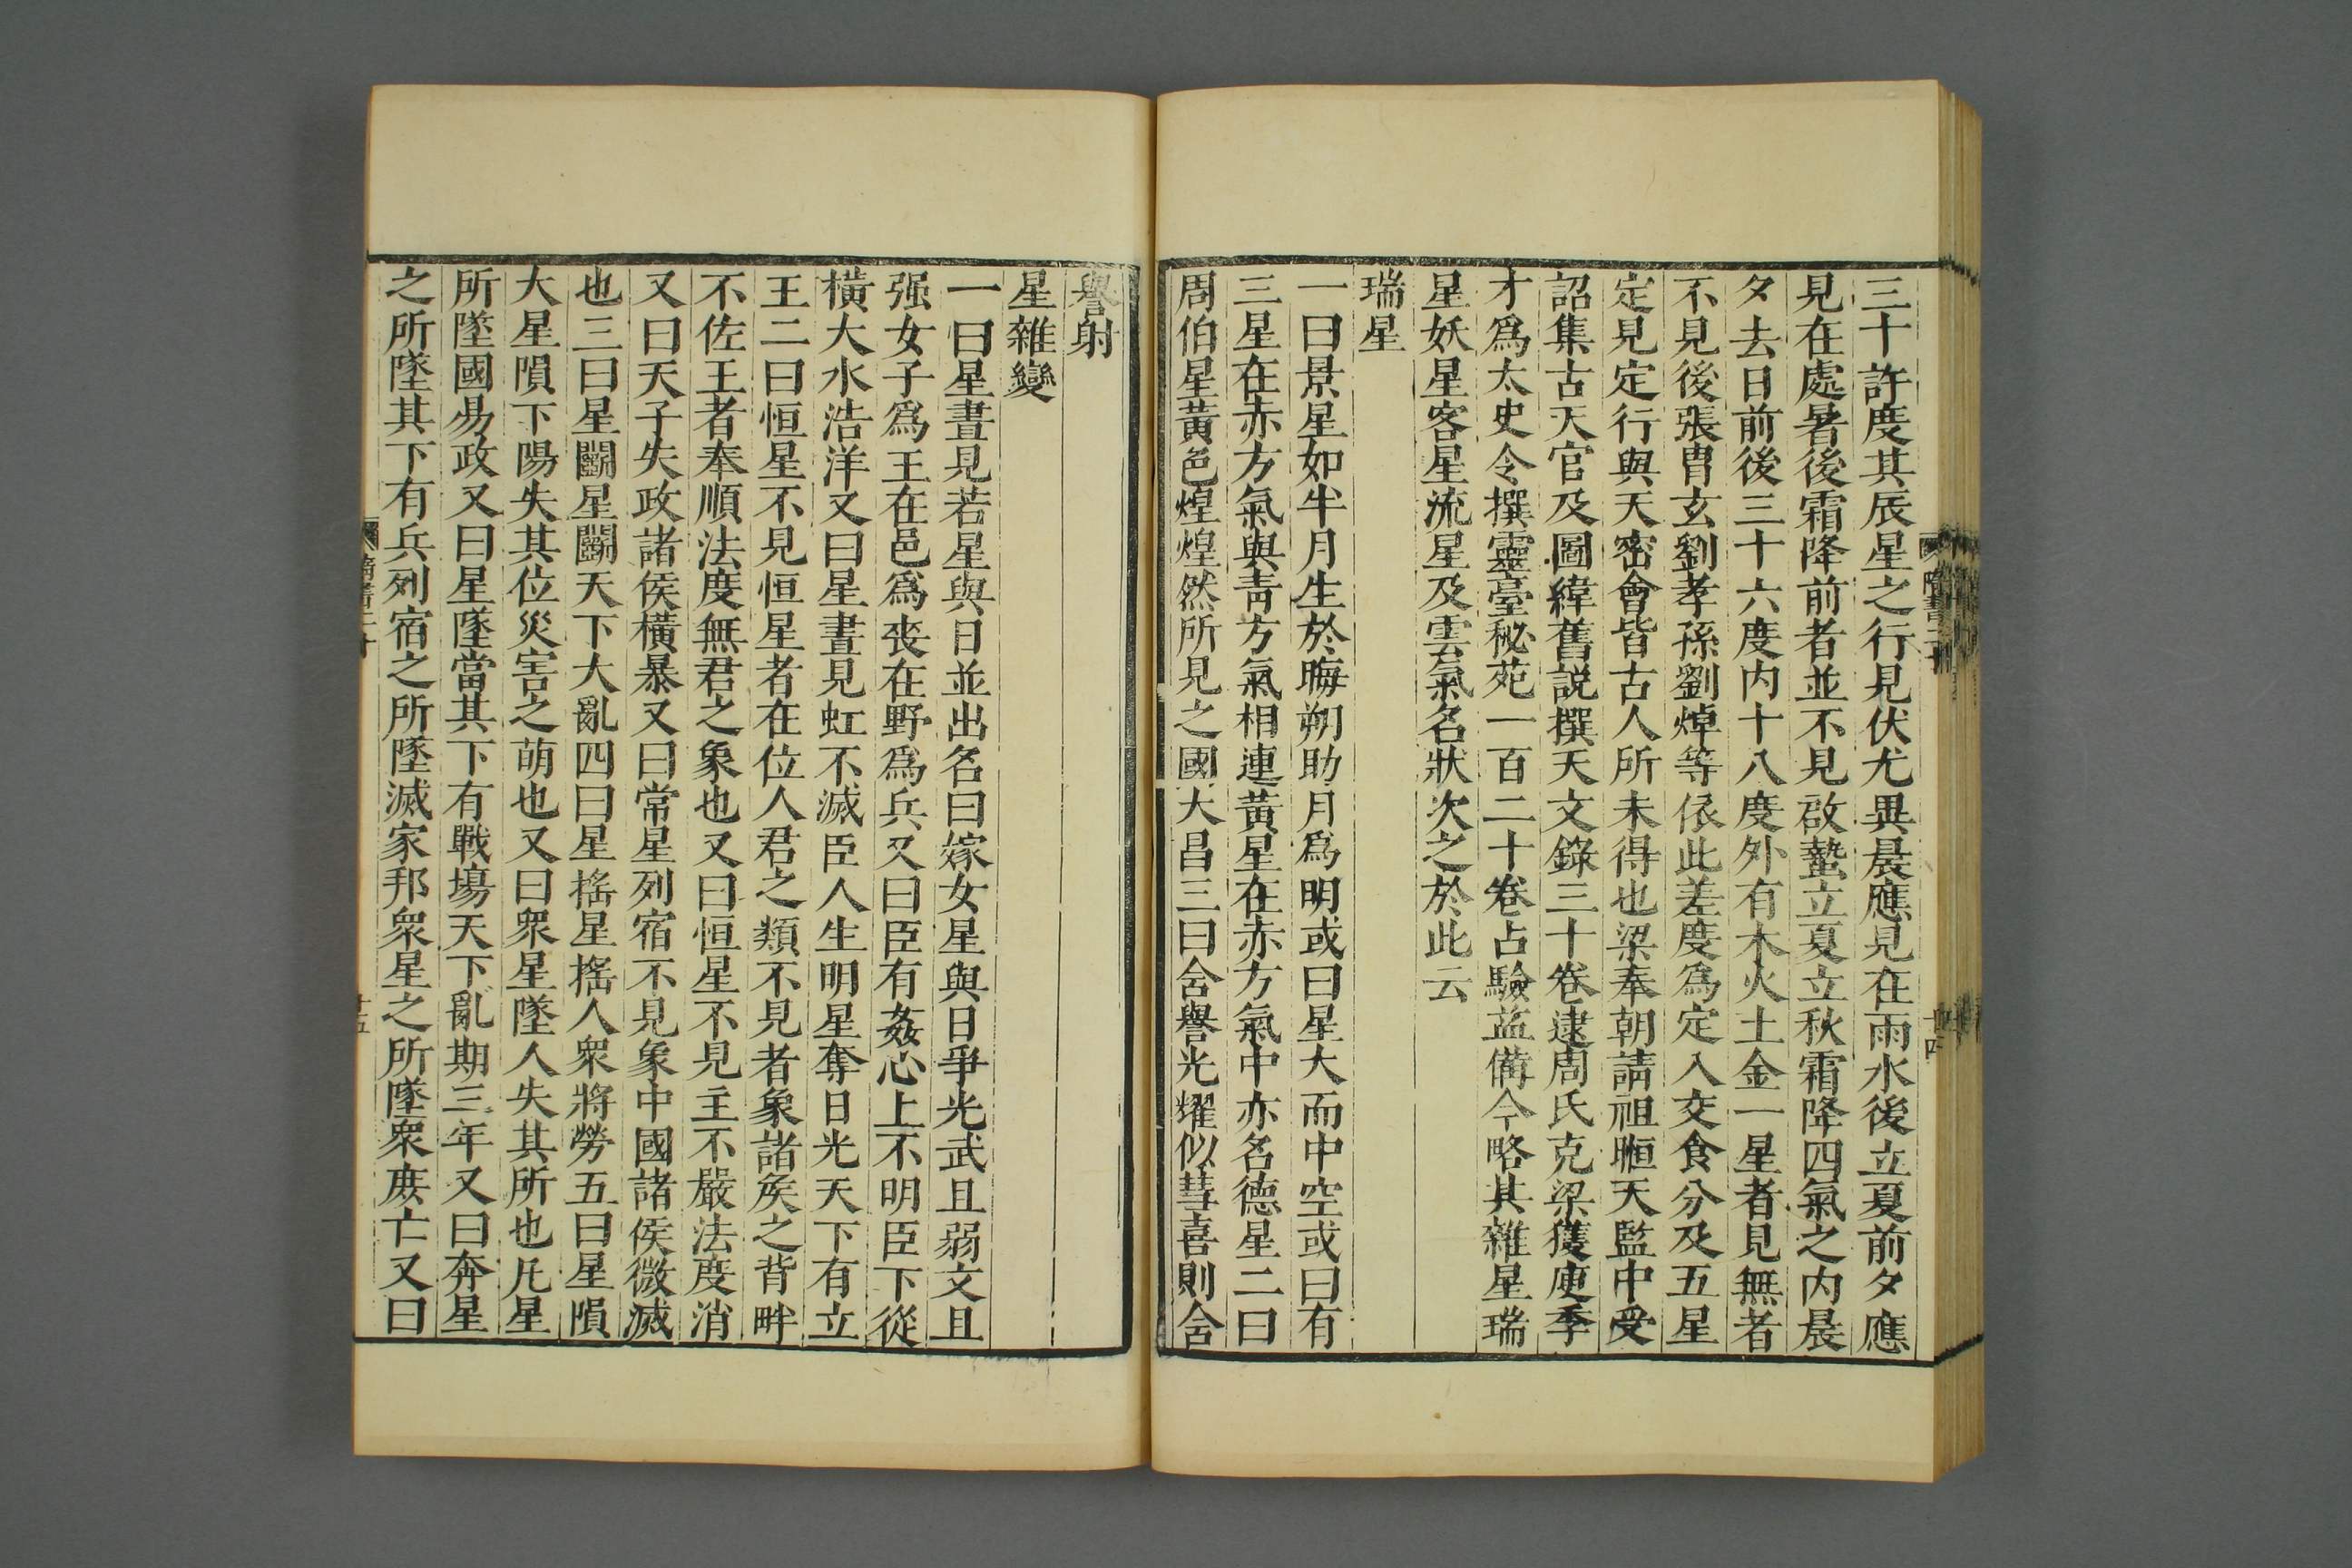 三十許度其辰星之行見伏尤異晨應見在雨水後立夏前夕應
見在處暑後霜降前者並不見啟蟄立夏立秋霜降四氣之內晨
夕去日前後三十六度內十八度外有木火土金一星者見無者
不見後張胄玄劉孝孫劉焯等依此差度爲定入交食分及五星
定見定行與天密會皆古人所未得也梁奉朝請祖暅天監中受
詔集古天官及圖緯舊說撰天文錄三十卷逮周氏克梁獲庾季
才爲太史令撰靈臺秘苑一百二十卷占驗益備今略其雜星瑞
星妖星客星流星及雲氣名狀次之於此云
瑞星
一曰景星如半月生於晦朔助月爲明或曰星大而中空或曰有
三星在赤方氣與靑方氣相連黃星在赤方氣中亦名德星二曰
周伯星黃色煌煌然所見之國大昌三曰含譽光耀似彗喜則含
譽射
星雜變
一曰星晝見若星與日並出名曰嫁女星與日爭光武且弱文且
强女子爲王在邑爲喪在野爲兵又曰臣有姦心上不明臣下從
橫大水浩洋又曰星晝見虹不滅臣人生明星奪日光天下有立
王二曰恒星不見恒星者在位人君之類不見者象諸侯之背畔
不佐王者奉順法度無君之象也又曰恒星不見主不嚴法度消
又曰天子失政諸侯橫暴又曰常星列宿不見象中國諸侯微滅
也三曰星鬭星鬭天下大亂四曰星搖星搖人衆將勞五曰星隕
大星隕下陽失其位災害之萌也又曰衆星墜人失其所也凡星
所墜國易政又曰星墜當其下有戰場天下亂期三年又曰奔星
之所墜其下有兵列宿之所墜滅家邦衆星之所墜衆庶亡又曰